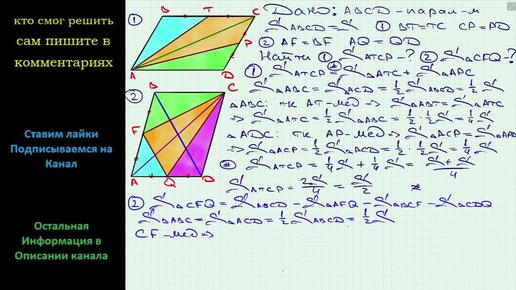 кто смог решить
сам пишите в
комментариях
Ставим лайки
Подписываемся на
Канал
Остальная
Информация в
Описании канала
① B T C
P
A D
② B C
F
A Q D
Дано: ABCD - парал-м
S ABCD = S ① BT=TC CP=PD
② AF=BF AQ=QD
Найти ① S ATCP - ? ② S △CFQ - ?
① S ATCP = S △ATC + S △APC
S △ABC = S △ACD = 1/2 S ABCD = 1/2 S
△ABC: тк AT-мед ⇒ S △ABT = S △ATC
⇒ S △ATC = 1/2 S △ABC = 1/2 · 1/2 S = 1/4 S
△ADC: тк AP-мед ⇒ S △ACP = S △ADP
⇒ S △ACP = 1/2 S △ACD = 1/2 · 1/2 S = 1/4 S
S ATCP = 1/4 S + 1/4 S = S + S / 4
S ATCP = 2S/4 = S/2
② S △CFQ = S ABCD - S △AFQ - S △BCF - S △CDQ
S △ABC = S △ACD = 1/2 S ABCD = 1/2 S
CF-мед ⇒